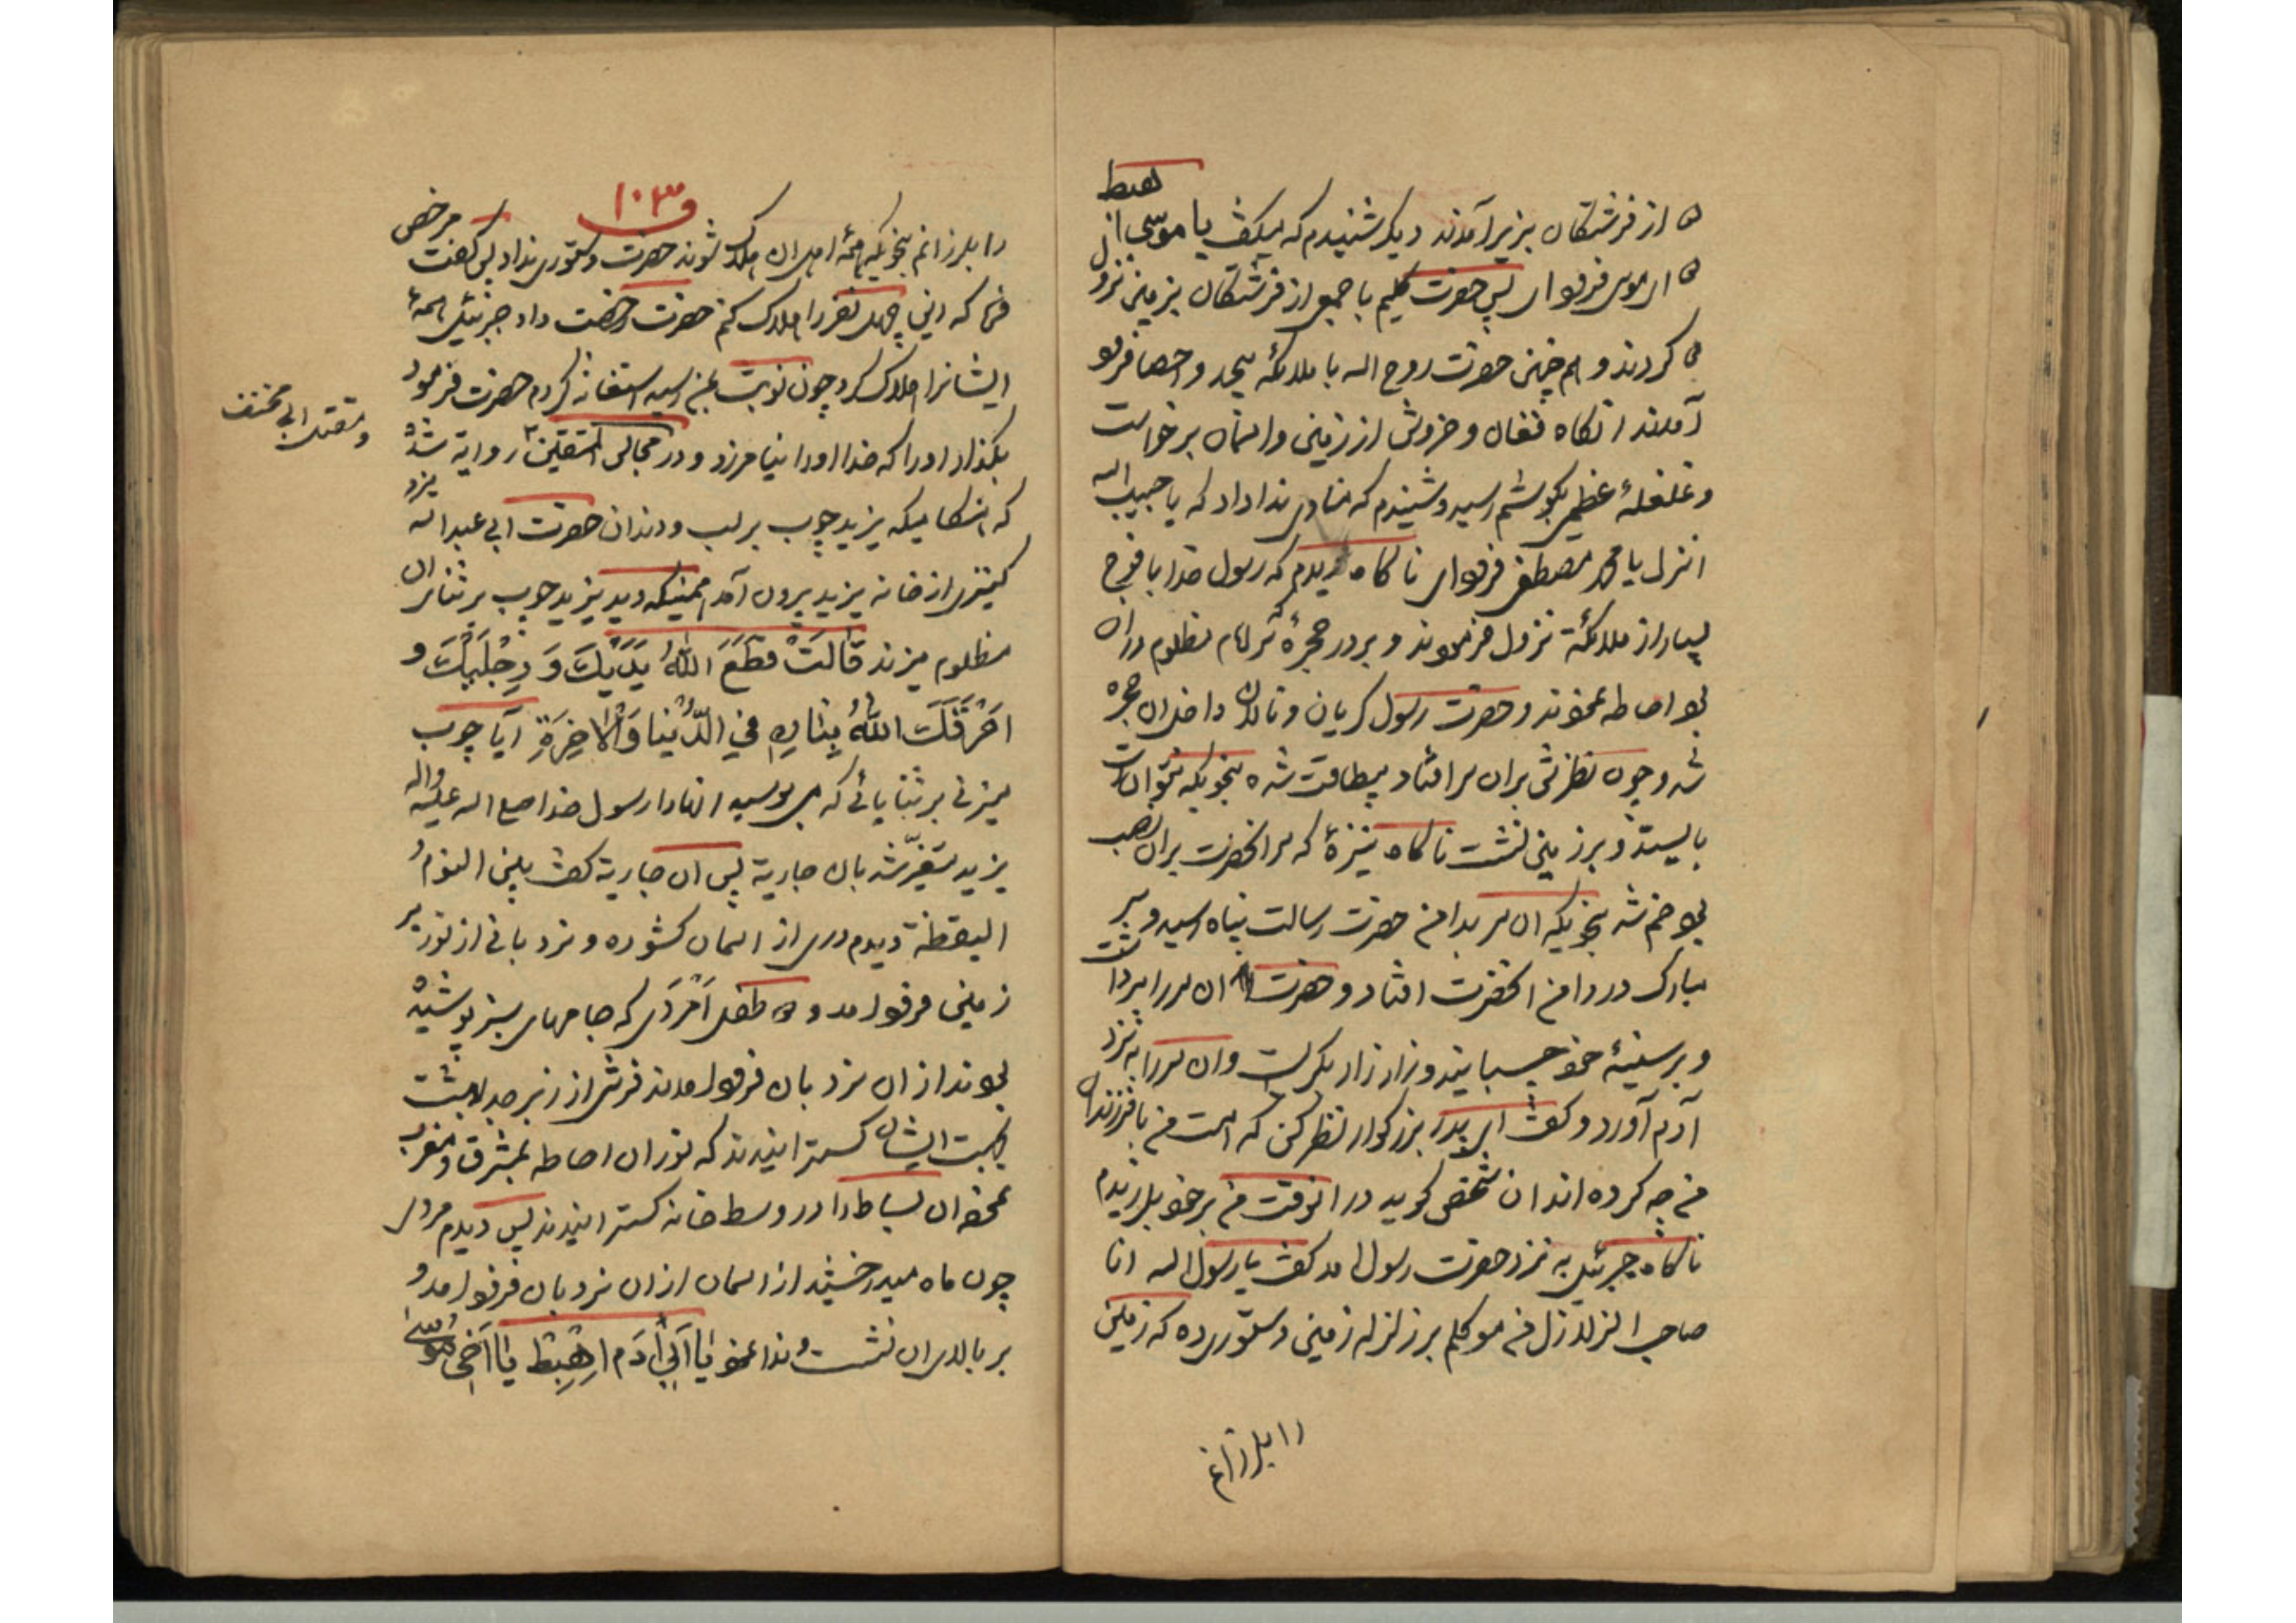 هبط
از فرشتگان بزیر آمدند دیگر شنیدم که میگفت یا موسی انزل
ای موسی فرودآی پس حضرت کلیم با جمعی از فرشتگان بزمین نزو
کردند و هم چنین حضرت روح اله با ملائکه بیحد و احصا فرود
آمدند انکاه فغان و خروش از زمین و اسمان برخواست
و غلغلهٔ عظیمی بکوشم رسید و شنیدم که منادی ندا داد که یا حبیب اله
انزل یا محمد مصطفی فرودای ناکاه دیدم که رسول خدا با فوج
بسیار از ملائکة نزول فرمودند و بر در حجرهٔ که سر امام مظلوم دران
بود احاطه نمودند و حضرت رسول کریان و نالان داخل ان حجره
شد و چون نظرش بران سر افتاد بیطاقت شده بنحویکه نتوانست
بایستد و بر زمین نشست ناکاه نیزهٔ که سر انحضرت بران نصب
بود خم شد بنحویکه ان سر بدامن حضرت رسالت پناه رسید و سر
مبارک در دامن انحضرت افتاد و حضرت ان سر را برداشت
و بر سینهٔ خود چسبانید و زار زار بکریست و ان سر را به نزد
آدم آورد و کفت ای پدر بزرکوار نظر کن که امت من با فرزندان
من چه کرده اند ان شخص کوید در انوقت من بر خود بلرزیدم
ناکاه جبرئیل به نزد حضرت رسول امد کفت یا رسول اله انا
صاحب الزلازل من موکلم بر زلزله زمین دستوری ده که زمین
را بلرزانم
ق ۱۰۳
را بلرزانم بنحویکه همهٔ اهل ان هلاک شوند حضرت دستوری نداد پس کفت مرخص
فرما که این چهل نفر را هلاک کنم حضرت رخصت داد جبرئیل همهٔ
ایشانرا هلاک کرد چون نوبت بمن رسید استغاثه کردم حضرت فرمود
بکذار او را که خدا او را نیامرزد و در مجالس المتقین روایة شده
و مقتل ابی مخنف
که هنکامیکه یزید چوب بر لب و دندان حضرت ابی عبد اله میزد
کنیزی از خانه یزید بیرون آمد همینکه دید یزید چوب بر ثنای ان
مظلوم میزند قَالَتْ قَطَعَ اللّهُ یَدَیْكَ وَ رِجْلَیْكَ و
اَحْرَقَكَ اللّهُ بِنَارِهِ فِي الدُّنْیَا وَالْاخِرَةِ آیا چوب
میزنی بر ثنایائی که می بوسید انها را رسول خدا صلی اله علیه واله
یزید متغیّر شد بان جاریة پس ان جاریة کفت بین النوم و
الیقظة دیدم دری از اسمان کشوده و نردبانی از نور بر
زمین فرود امد و طفل اَمْرَدی که جامهای سبز پوشیده
بودند از ان نردبان فرود امدند فرشی از زبرجد بهشت
بجهت ایشان کسترانیدند که نور ان احاطه بمشرق و مغرب
نمود ان بساط را در وسط خانه کسترانیدند پس دیدم مردی
چون ماه میدرخشید از اسمان از ان نردبان فرود امد و
بر بالای ان نشست و ندا نمود یَا اَبِي آدَم اِهْبِطْ یَا اَخِي مُوسٰی